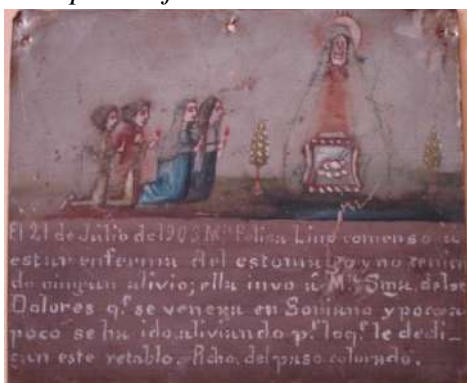 El 21 de Julio del 1903 Mª Felisa Lino comenso á
estar enferma del estomago y no tenien
do ningun alivio; ella invo á Mª Sma. de los
Dolores q.ᵉ se venera en Soriano y poco a
poco se ha ido aliviando p.ʳ lo q.ᵉ le dedi-
can este retablo. Picho. del paso colorado.